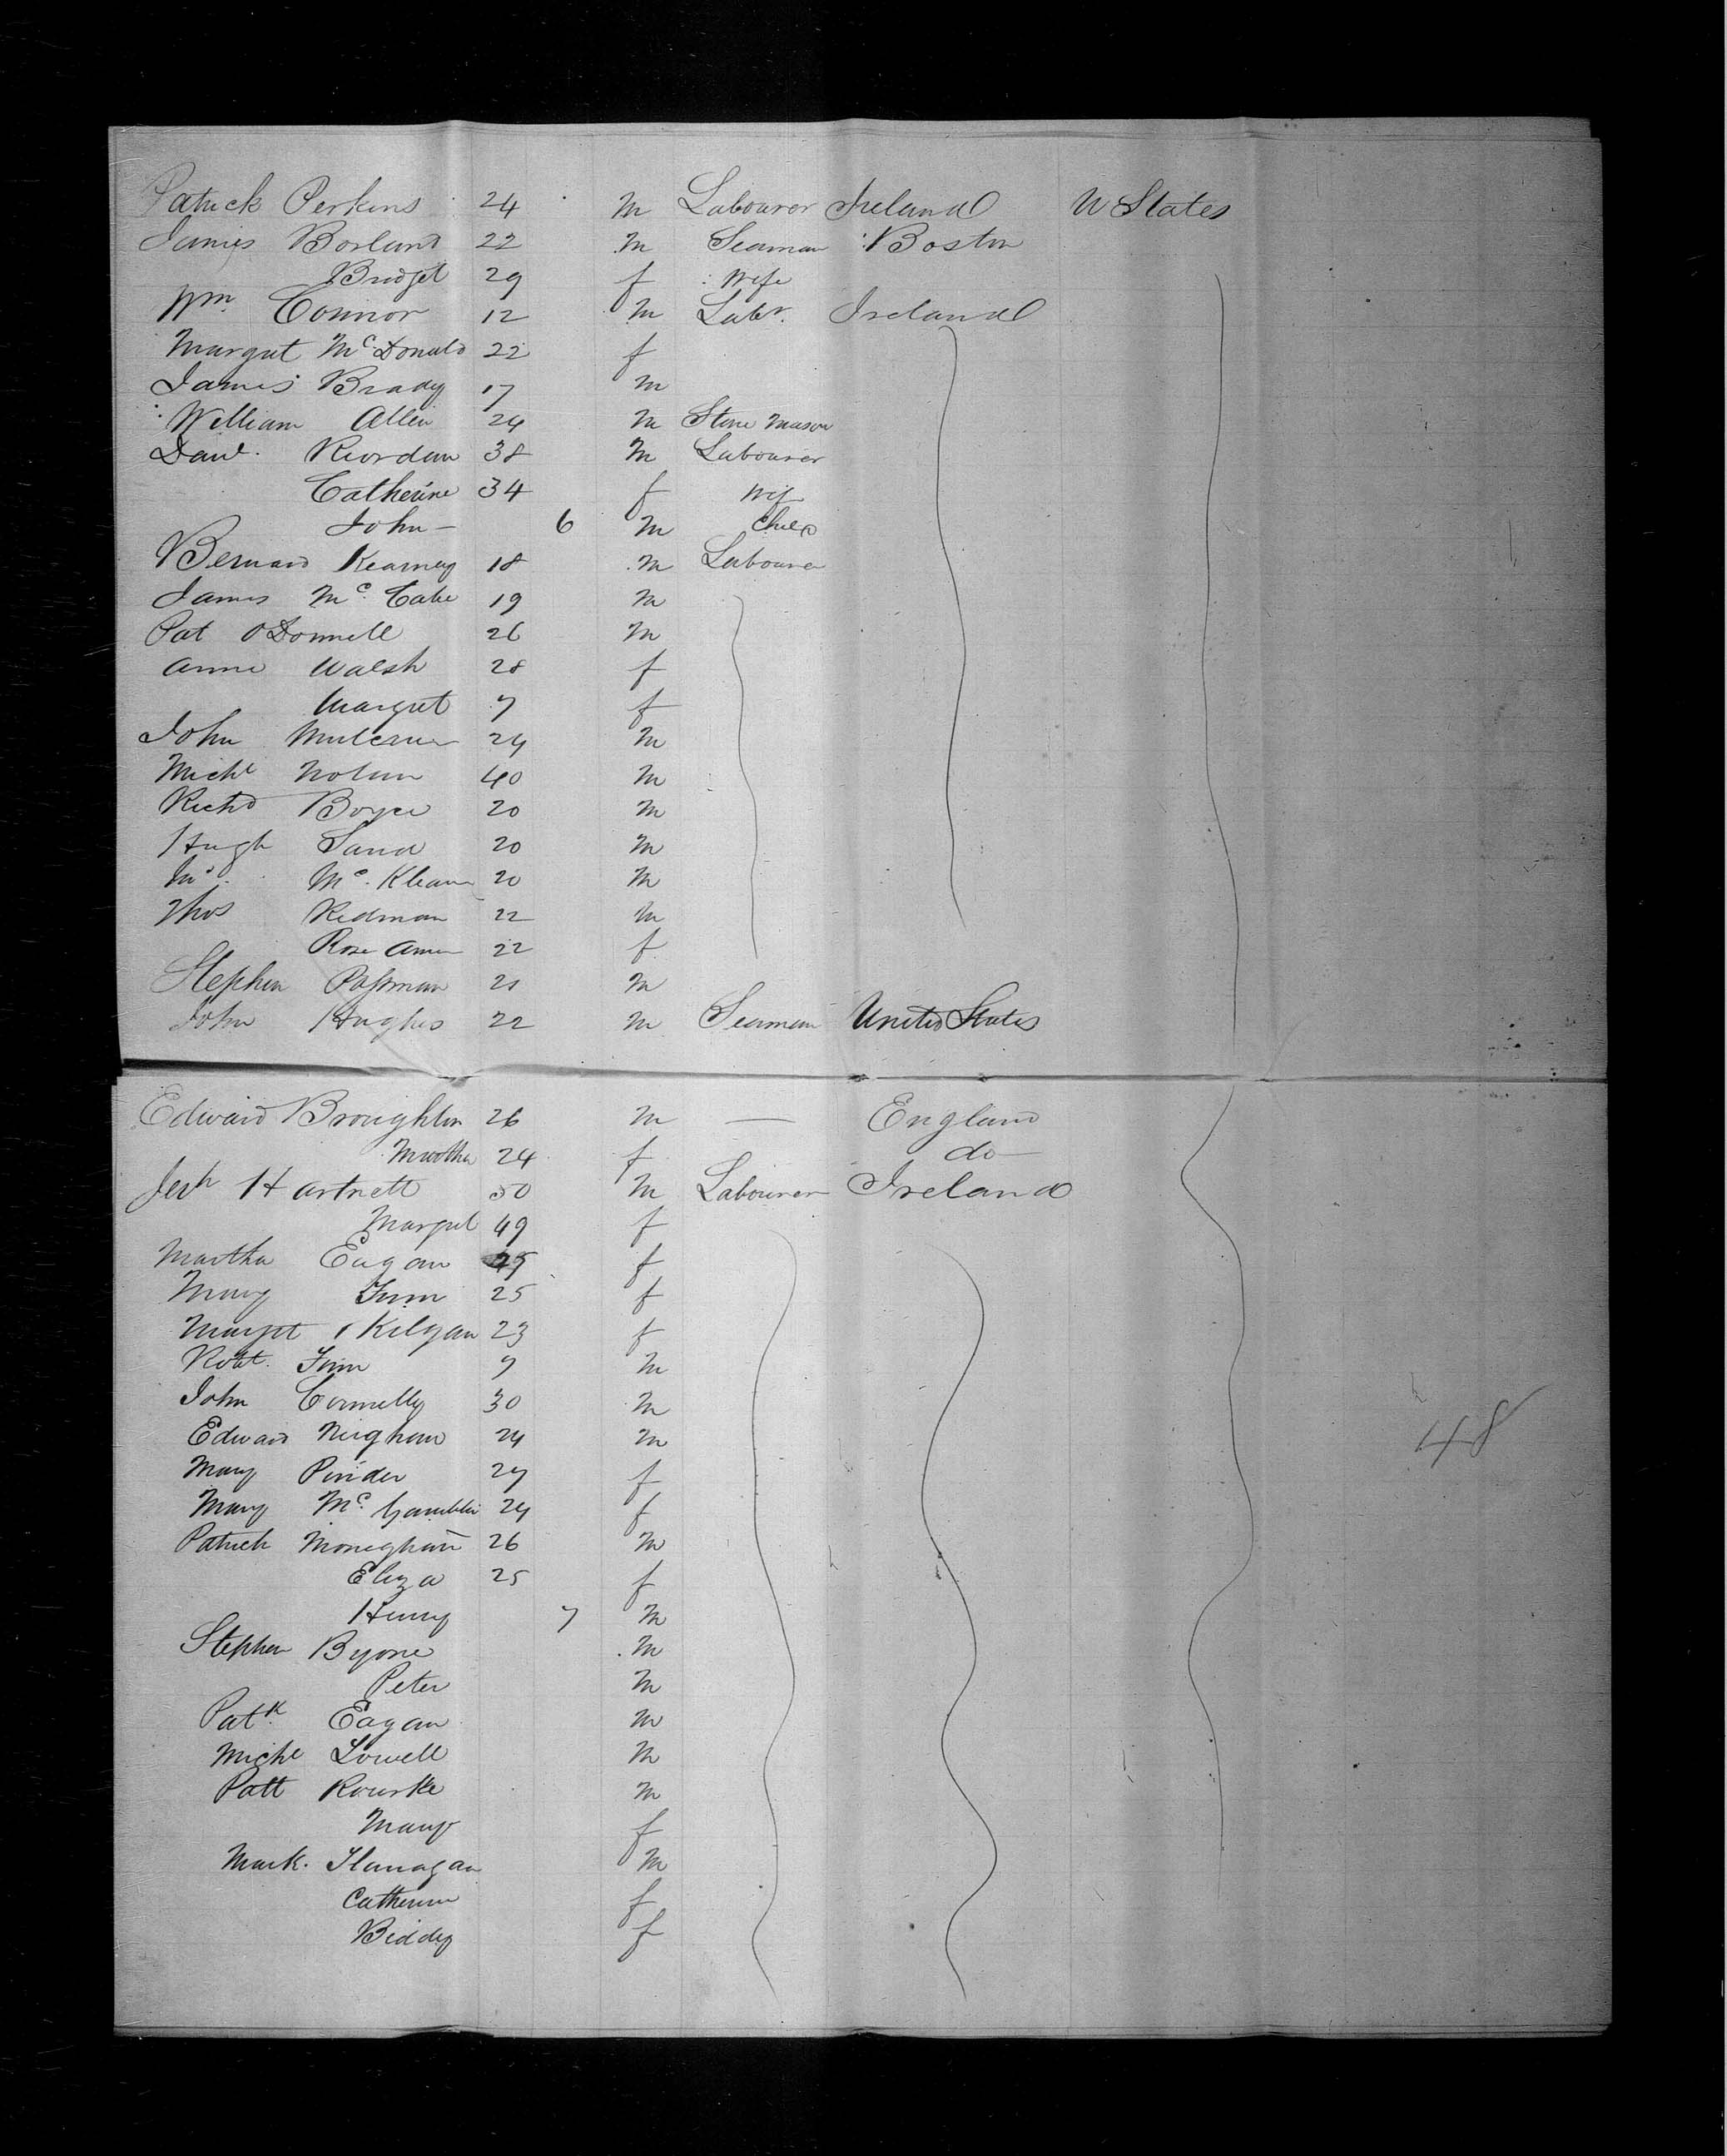 Patrick Perkins 24 M Labourer Ireland U States
James Borland 22 M Seaman Boston
Bridget 29 f Wife
Wm. Connor 12 M Labr. Ireland
Margret McDonald 22 f
James Brady 17 M
William Allen 24 M Stone Mason
Danl. Riordan 38 M Labourer
Catherine 34 f Wife
John 6 M Child
Bernard Kearney 18 M Labourer
James Mc Cabe 19 M
Pat ODonnell 26 M
Anne Walsh 28 f
Margret 7 f
John 24 M
Michl Nolan 40 M
Richd Boyce 20 M
Hugh Sand 20 M
Mc. 20 M
Thos Redman 22 M
Rose Ann 22 f
Stephen Passman 21 M
John Hughes 22 M Seaman United States
Edward Broughton 26 M — England
24 f do
Hartnett 50 M Labourer Ireland
Margret 49 f
Martha Eagan f
Mary Finn 25 f
Margret Kilgan 23 f
Robt. Finn 9 M
John Connelly 30 M
Edward 24 M
Mary Pinder 27 f
Mary Mc. 24 f
Patrick Moneghan 26 M
Eliza 25 f
Henry 7 M
Stephen Byone M
Peter M
Patk Eagan M
48
Michl Lowell M
Patt Rourke M
Mary f
Mark. Flanagan M
Catherine f
Biddy f